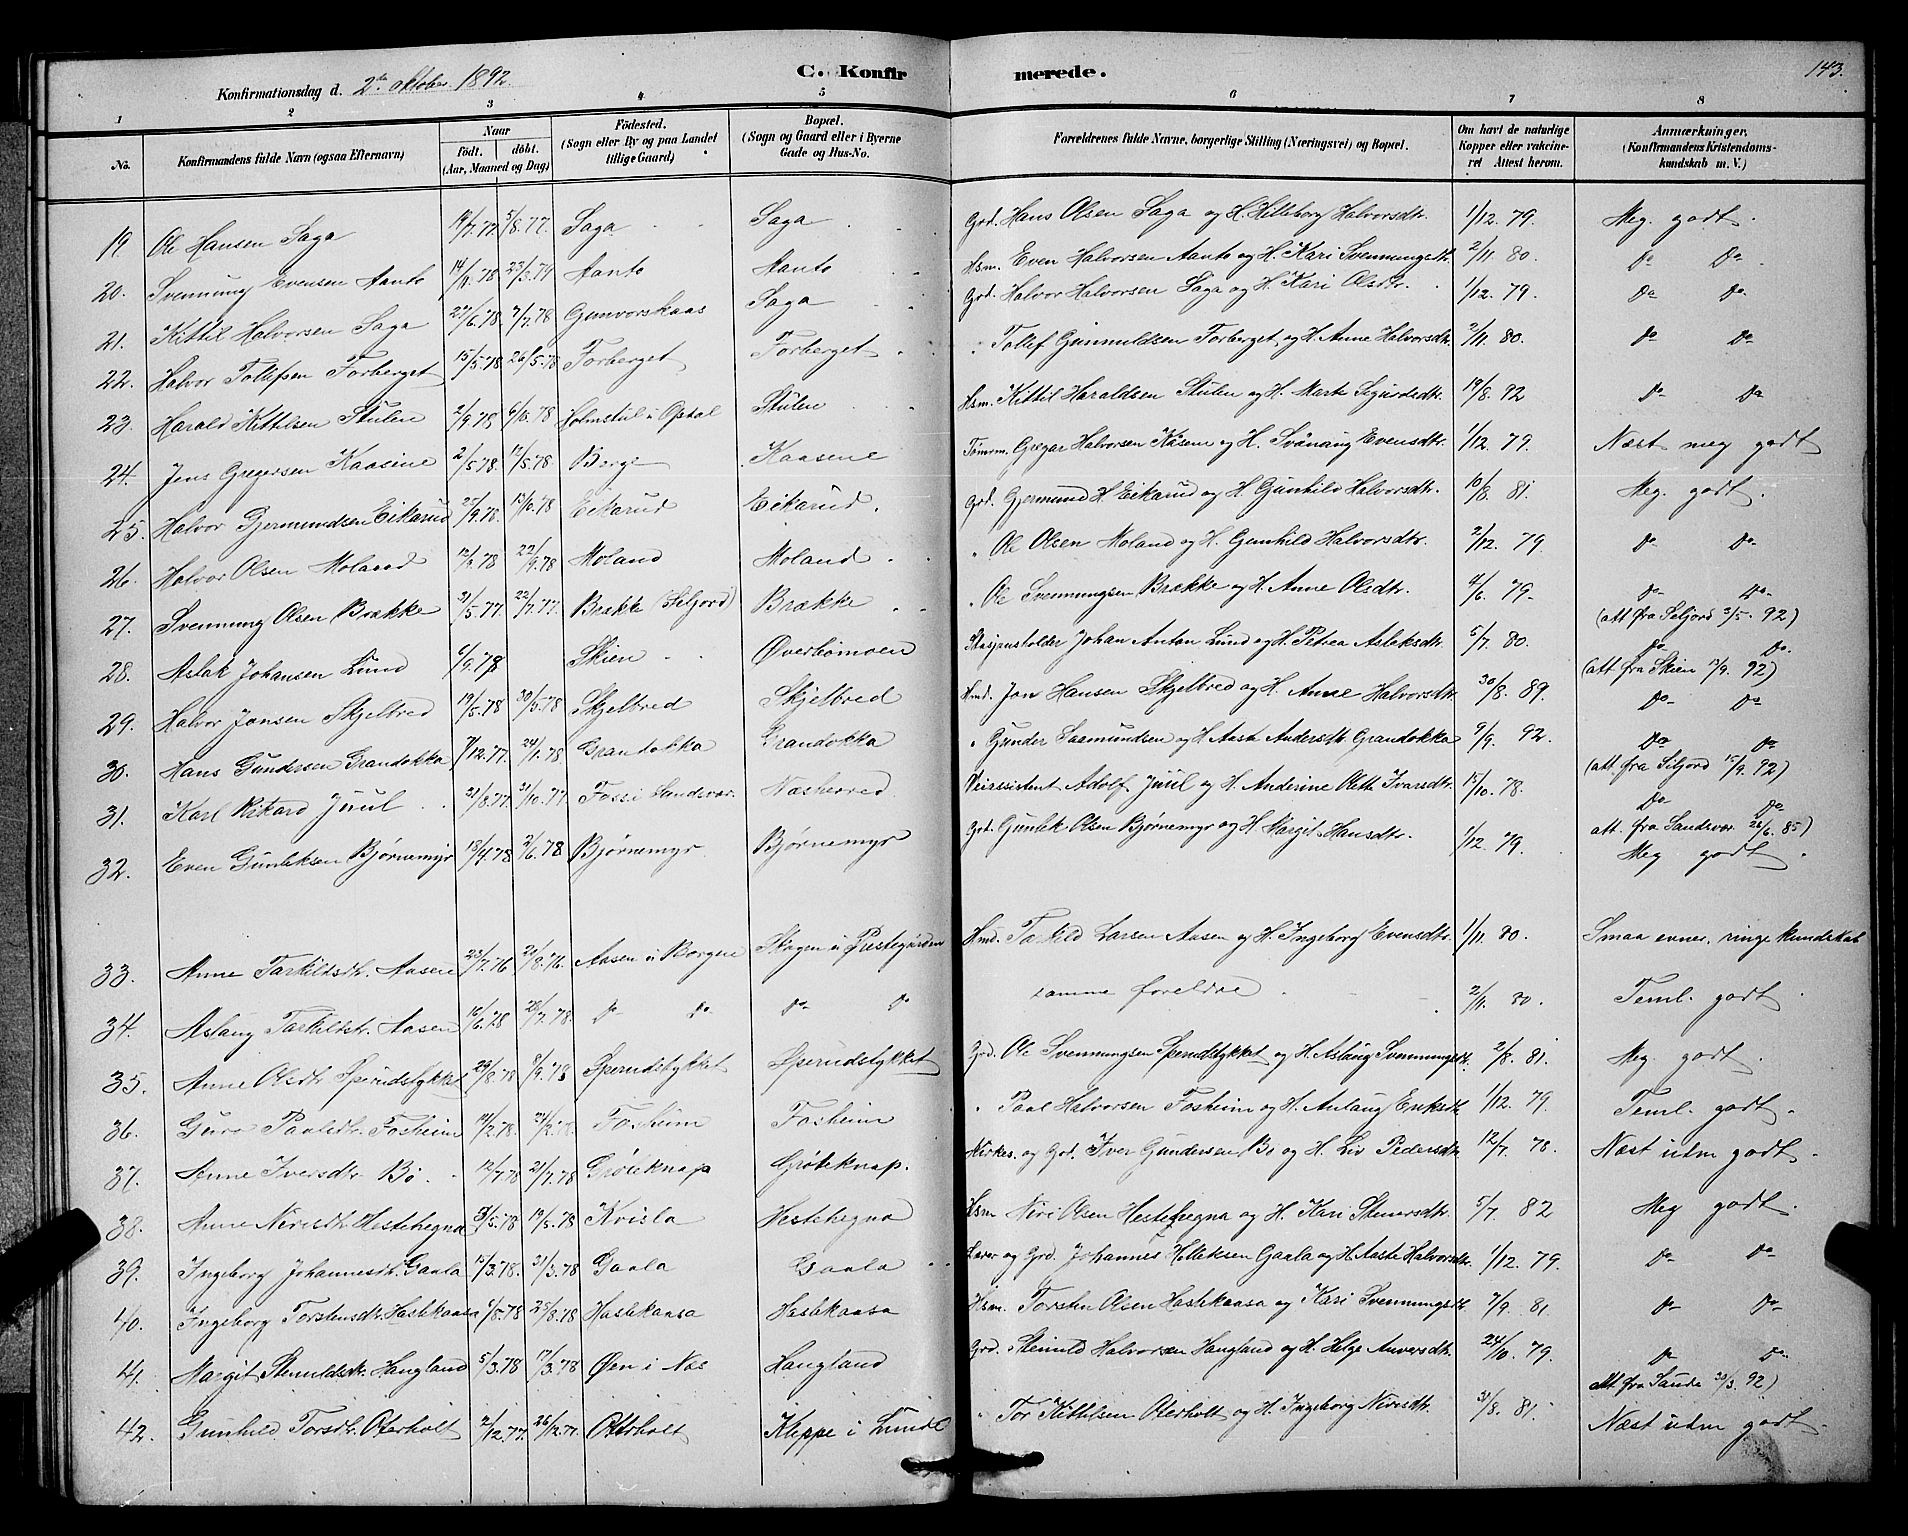 C. Konfirmerede. 143.
Konfirmationsdag d. 2de Oktober 1892.
1 2 3 4 5 6 7 8
No. Konfirmandens fulde Navn (ogsaa Efternavn) Naar født. døbt. (Aar, Maaned og Dag) Fødested. (Sogn eller By og paa Landet tillige Gaard) Bopæl. (Sogn og Gaard eller i Byerne Gade og Hus-No. Forældrenes fulde Navne, borgerlige Stilling (Næringsvei) og Bopæl. Om havt de naturlige Kopper eller vakcineret Attest herom. Anmærkninger. (Konfirmandens Kristendomskundskab m. V.)
19. Ole Hansen Saga 14/7.77 5/8.77. Saga Saga Grd. Hans Olsen Saga og H. Hilleborg Halvorsdtr. 1/12. 79. Meg. godt.
20. Svennung Evensen Aanto 23/3.79 Aanto Aanto Hsm. Even Halvorsen Aanto og H. Kari Svennungsdtr. 2/11. 80. Do Do
21. Kittil Halvorsen Saga 22/6.78 7/7.78 Gunvorskaas Saga Grd. Halvor Halvorsen Saga og H. Kari Olsdtr. 1/12. 79. Do Do
22. Halvor Tollefsen Forberget 15/5.78 26/5.78 Forberget Forberget " Tollef Gunnuldsen Forberget og H. Anne Halvorsdtr. 2/11. 80. Do Do
23. Harald Kittilsen Stulen 2/9.78 6/10.78 Holmstul i Opdal Stulen Hsm. Kittil Haraldsen Stulen og H. Marte Sigurdsdtr. 19/8. 92 Do Do
24. Jens Gregersen Kaasine 2/5.78. 12/5.78 Borge Kaasene Tømrm. Gregar Halvorsen Kåsene og H. Svånaug Evensdtr. 1/12. 79. Næst meg godt
25. Halvor Gjermundsen Eikarud 25/9.78. 13/10.78 Eikarud Eikarud. Grd. Gjermund H. Eikarud og H. Gunhild Halvorsdtr. 10/8. 81. Meg. godt.
26. Halvor Olsen Moland 22/9.78 Moland Moland " Ole Olsen Moland og H. Gunhild Halvorsdtr. 2/12. 79. Do Do
27. Svennung Olsen Brække 31/5.77. 22/7.77. Brække (Seljord) Brække " Ole Svennungsen Brække og H. Anne Olsdtr. 4/6. 79. Do Do
(att fra Seljord 3/5. 92)
28. Aslak Johansen Lund 6/9.78 Skien Øverbømoen Johan Anton Lund og H. Petrea Asleksdtr. 5/7. 80. Do Do
(att. fra Skien 13/9. 92)
29. Halvor Jonsen Skjelbred 19/5.78 30/5.78 Skjelbred Skjelbred Hmd. Jon Hansen Skjelbred og H. Anne Halvorsdtr. 30/8. 89. Do Do
30. Hans Gundersen Grandokka 7/12.77. 20/1.78 Grandokka Grandokka " Gunder Saamundsen og H. Aaste Andersdtr. Grandokka 9/9. 92. Do Do
(att. fra Seljord 15/9. 92)
31. Karl Rikard Juul 21/8.77. 21/10.77 Fossi Sandsvær. Næsherred Veiassistent Adolf Juul og H. Anderine Olette Ivarsdtr. 15/10. 78. Do Do
att. fra Sandsvær. 26/6. 85)
32. Even Gunleksen Bjørnemyr 13/4.78 2/6.78 Bjørnemyr. Bjørnemyr Grd. Gunlek Olsen Bjørnemyr og H. Margit Hansdtr. 1/12. 79. Meg godt.
33. Anne Tarkildsdtr. Aasen 23/7.76 20/8.76. Aasen i Borgen Skogen i Prestegården Hmd. Tarkild Larsen Aasen og H. Ingeborg Evensdtr. 1/11. 80. Smaa evner, ringe kundskab
34. Aslaug Tarkildsdtr. Aasen 16/6.78 28/7.78. Do Do Do Do samme foreldre 2/11. 80. Teml. godt.
35. Anne Olsdtr. Sperudstykket 24/8.78 8/9.78 Sperudstykket Sperudstykket Grd. Ole Svennungsen Sperudstykket og H. Aslaug Svennungsdtr. 2/8. 81. Meg. godt.
36. Guro Paalsdtr. Fosheim Fosheim Fosheim " Paal Halvorsen Fosheim og H. Anlaug Eriksdtr. 1/12. 79. Teml. godt.
37. Anne Iversdtr. Bø. 12/7.78 21/7.78 Gröteknap Gröteknap. Kirkes. og Grd. Iver Gundersen Bø og H. Liv Pedersdtr. 12/7. 78. Næst udm godt.
38. Anne Nirisdtr. Hestehegna 9/5.78 19/5.78 Kvisla Hestehegna Hsm Niri Olsen Hestehegna og H. Kari Steinersdtr. 5/7. 82 Meg godt.
39. Ingeborg Johannesdtr. Gaala 15/3.78. 31/3.78 Gaala Gaala Lærer og Grd. Johannes Kittelsen Gaala og H. Aaste Halvorsdtr. 1/12. 79. Do Do
40. Ingeborg Torstensdtr. Hastekaasa 6/8.78 25/8.78 Hastekaasa Hastekaasa Hsm. Torsten Olsen Hastekaasa og Kari Svennungsdtr. 7/9. 81. Do Do
41. Margit Stenuldsdtr. Haugland 5/3.78 17/3.78 Øen i Næs Haugland Grd. Steinuld Halvorsen Haugland og H. Helge Anversdtr. 24/10. 79. Do Do
att fra Saude 30/3. 92)
42. Gunhild Torsdtr. Oterholt 2/12.77. 26/12.77. Oterholt Kleppe i Lunde " Tor Kittilsen Oterholt og H. Ingeborg Nirisdtr. 30/8. 81. Næst udm godt.